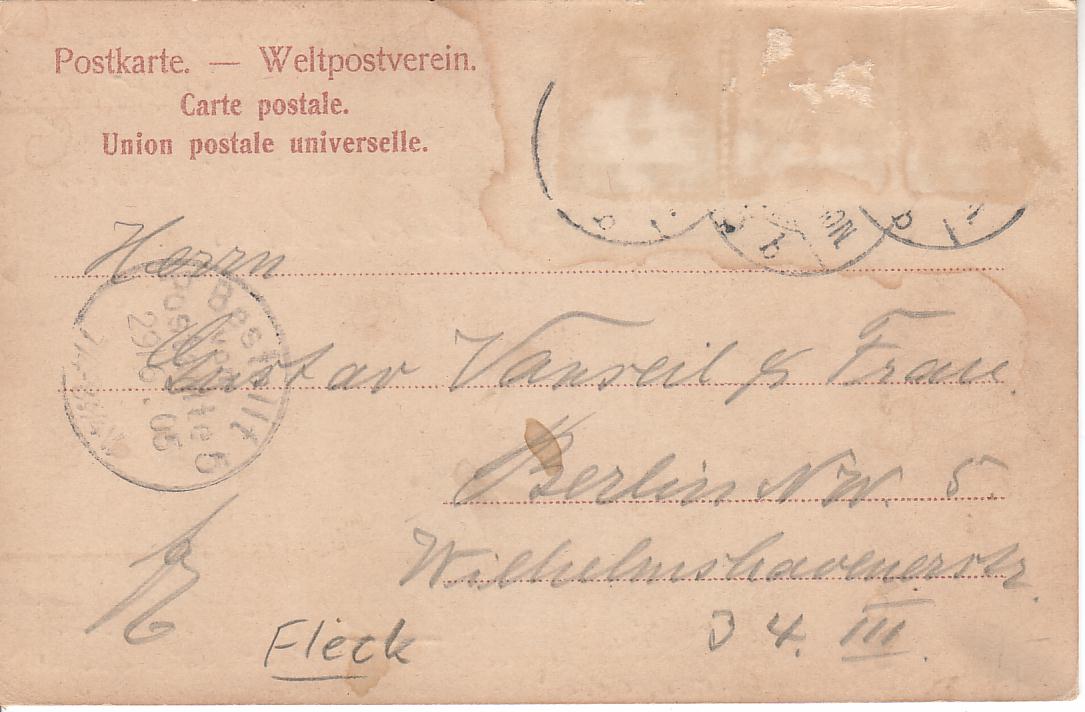 Postkarte. — Weltpostverein.
Carte postale.
Union postale universelle.
Herrn
Bestellt
Postamte 5
29. 05
Gustav Vanseil & Frau
Berlin NW. 5.
Wilhelmshavenerstr.
34. III.
Fleck